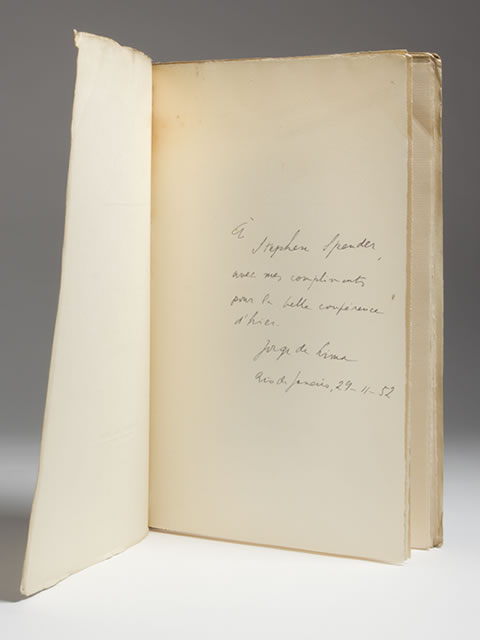 À
Stephen Spender,
avec mes compliments
pour la belle conférence
d'hier.
Jorge de Lima
Rio de Janeiro, 29-11-52